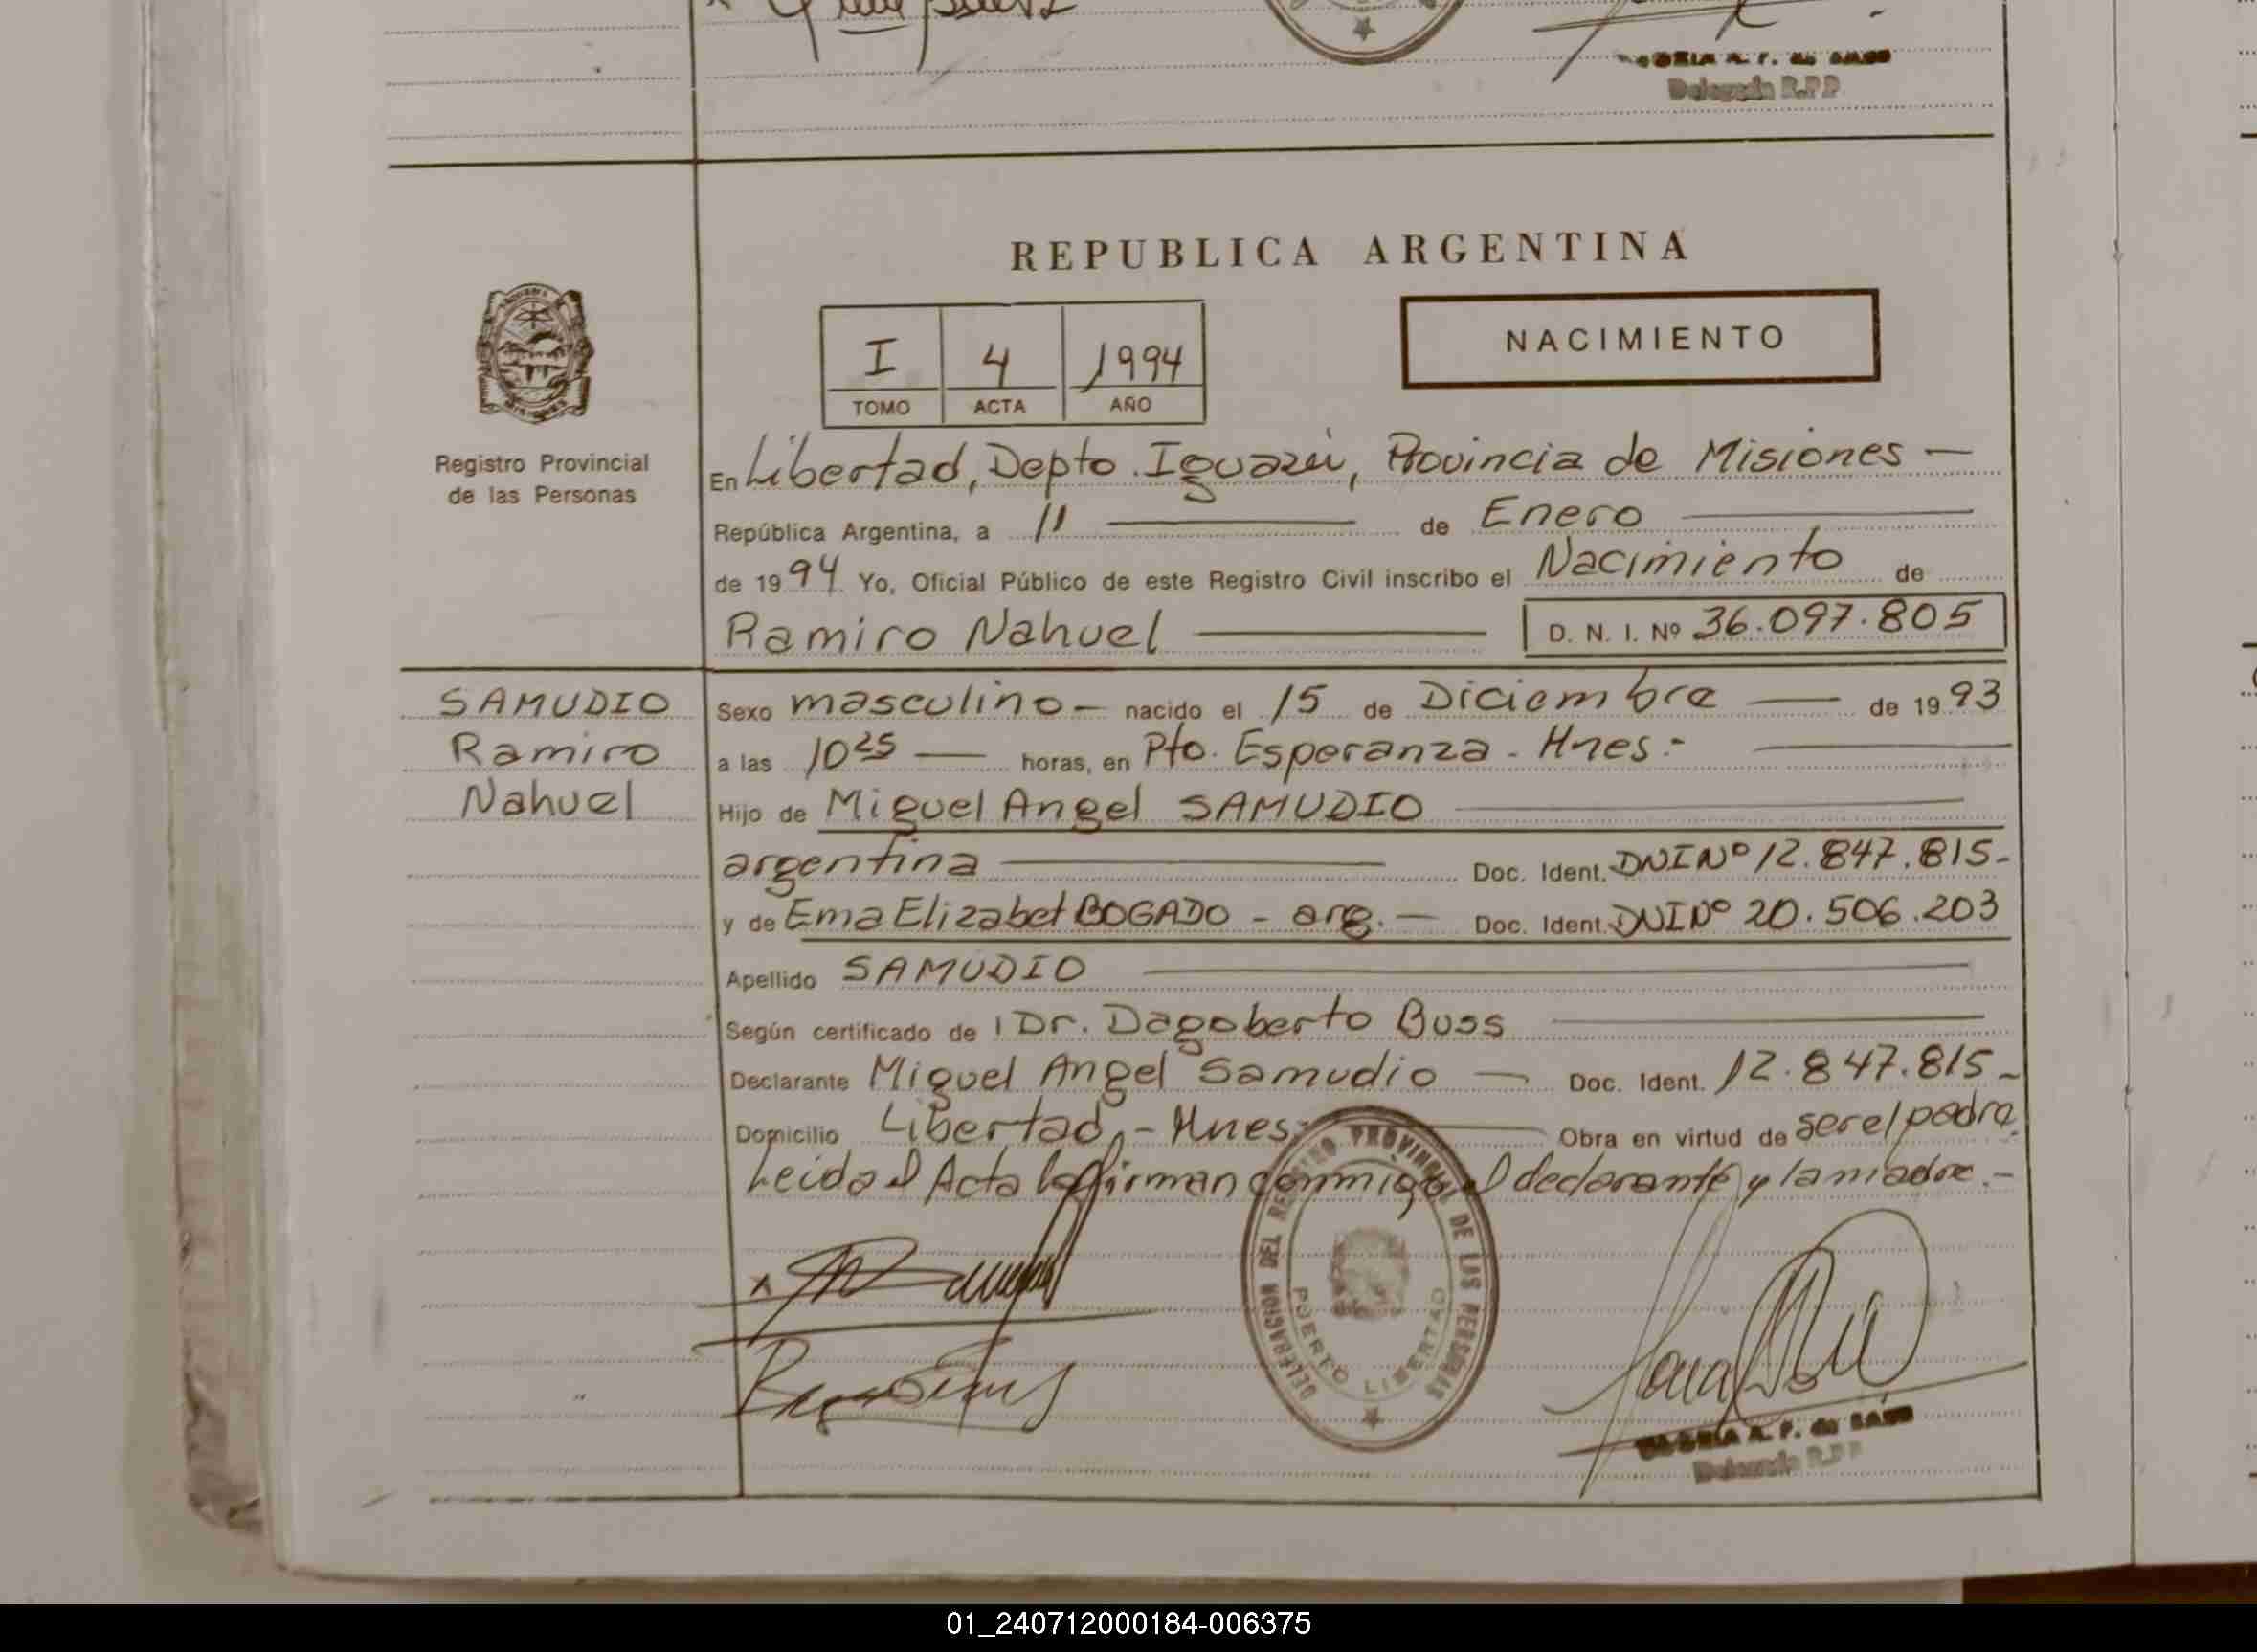 Delegada R.P.P.
REPUBLICA ARGENTINA
NACIMIENTO
I 4 1994
TOMO ACTA AÑO
Registro Provincial
de las Personas
En Libertad, Depto. Iguazú, Provincia de Misiones —
República Argentina, a 11 — de Enero —
de 1994 Yo, Oficial Público de este Registro Civil inscribo el Nacimiento de
Ramiro Nahuel — D. N. I. Nº 36.097.805
SAMUDIO
Ramiro
Nahuel
Sexo masculino — nacido el 15 de Diciembre — de 1993
a las 10 25 — horas, en Pto. Esperanza - Mnes.- —
Hijo de Miguel Angel SAMUDIO —
argentina — Doc. Ident. DNI Nº 12.847.815-
y de Ema Elizabet BOGADO - arg. — Doc. Ident. DNI Nº 20.506.203
Apellido SAMUDIO —
Según certificado de Dr. Dagoberto Buss —
Declarante Miguel Angel Samudio — Doc. Ident. 12.847.815-
Domicilio Libertad, - Mnes. — Obra en virtud de ser el padre.
Leida el Acta la firman conmigo el declarante y la madre.-
DELEGACION DEL REGISTRO PROVINCIAL DE LAS PERSONAS
PUERTO LIBERTAD
A. F. de
Delegada R.P.P.
01_240712000184-006375